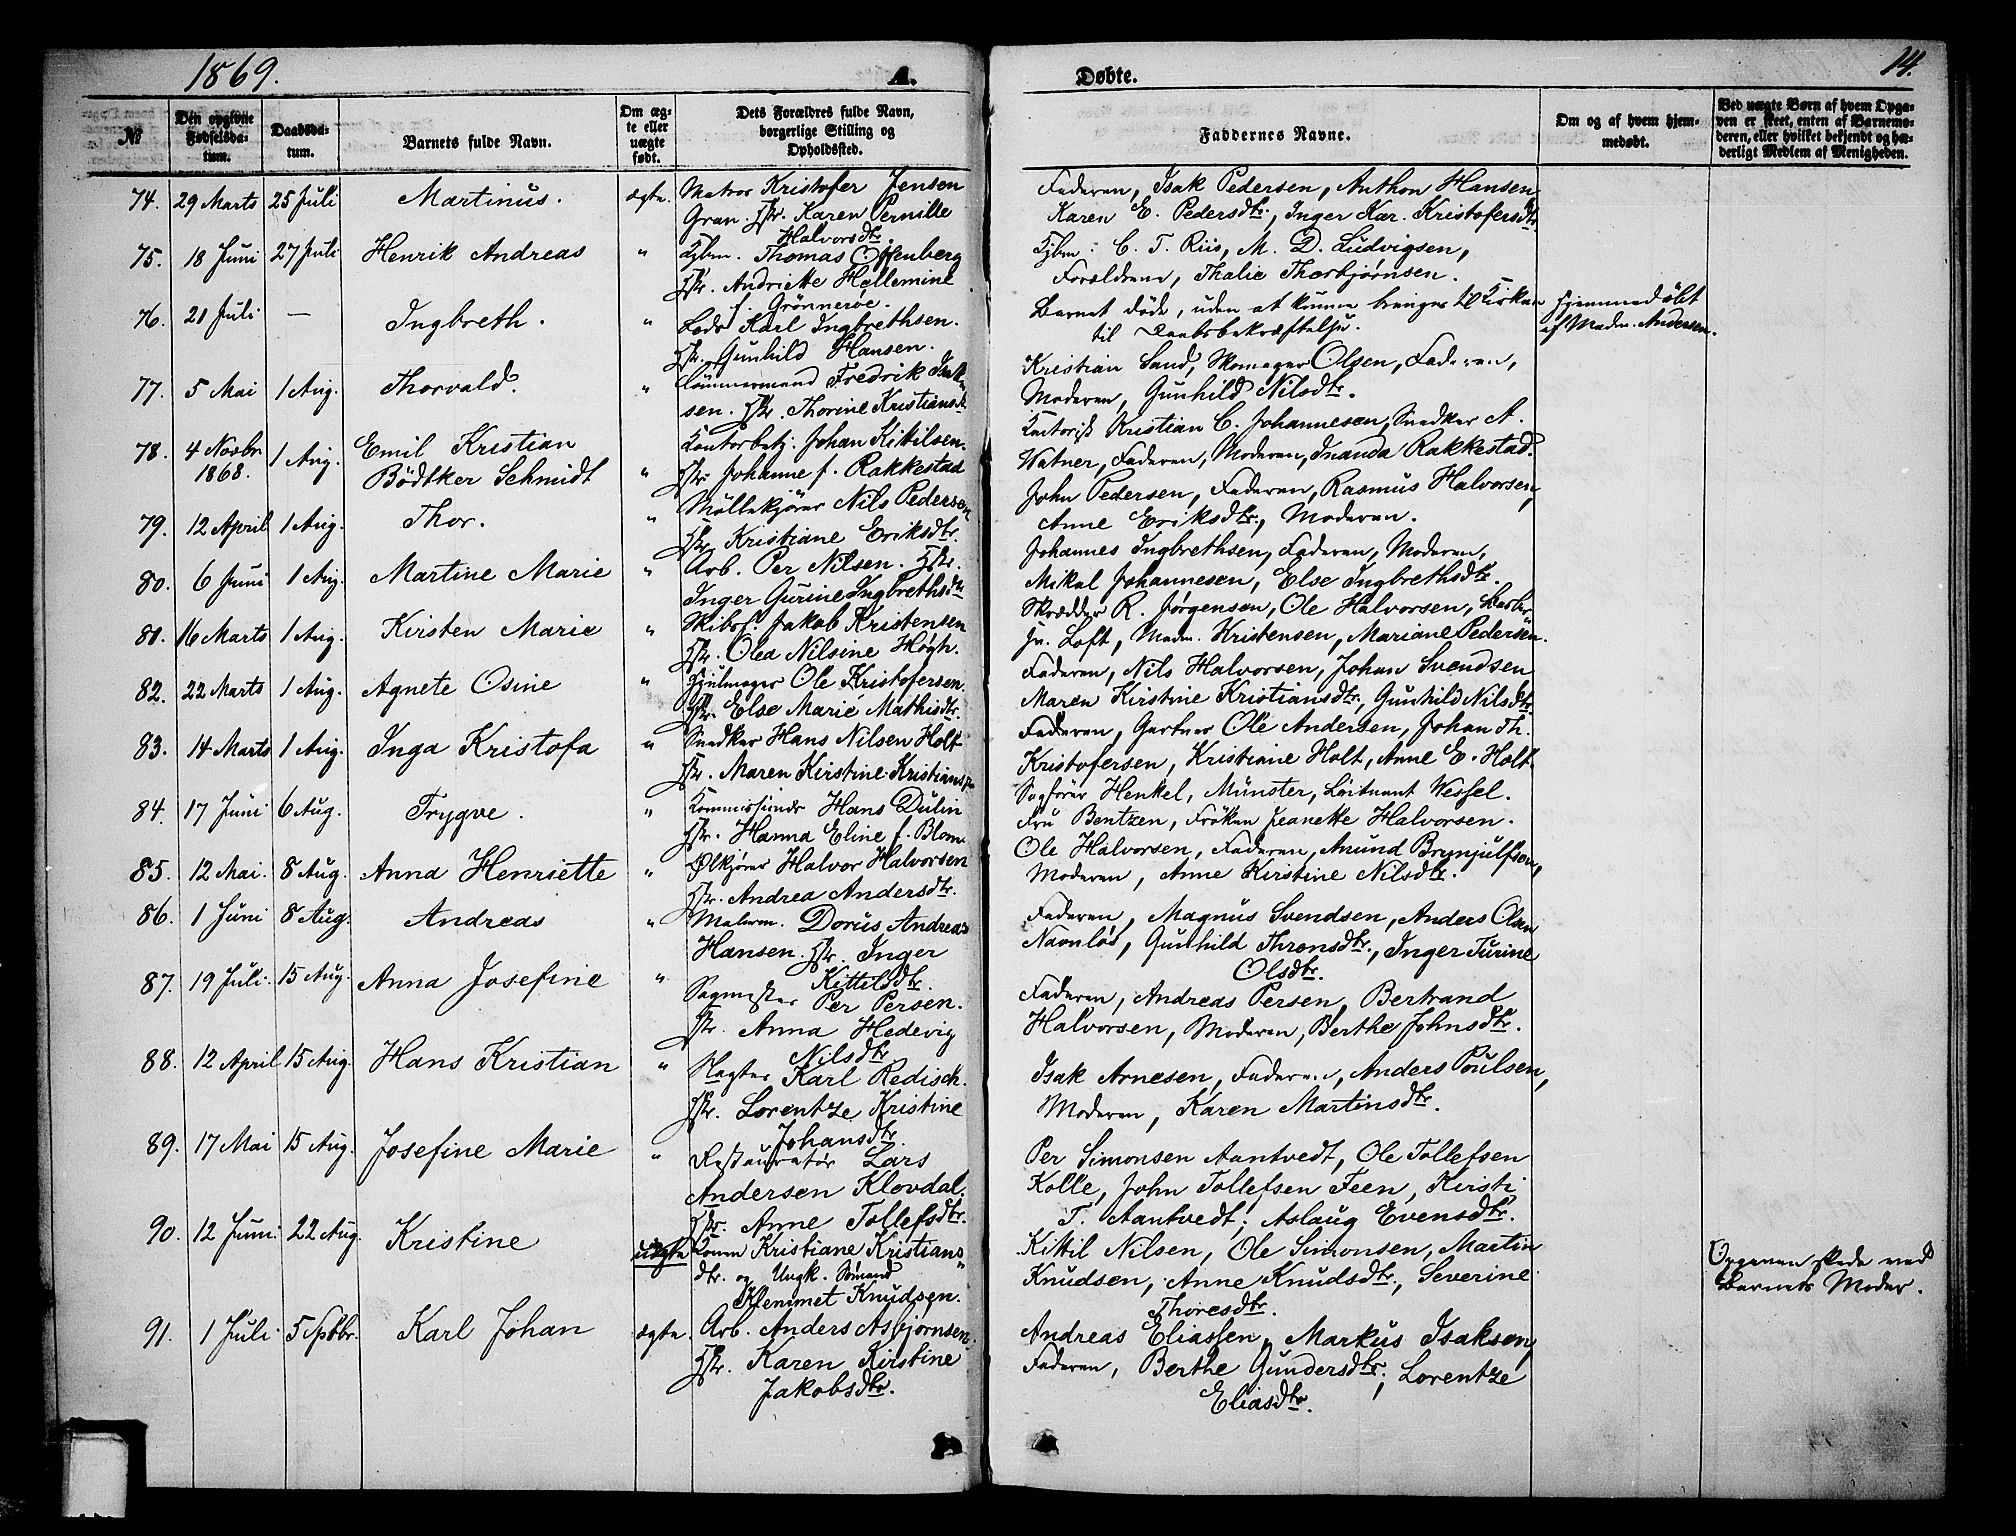 1869.
A.
Døbte.
14.
№
Den opgivne Fødselsdatum.
Daabsdatum.
Barnets fulde Navn.
Om ægte eller uægte født.
Dets Forældres fulde Navn, borgerlige Stilling og Opholdssted.
Faddernes Navne.
Om og af hvem hjemmedøbt.
Ved uægte Børn af hvem Opgaven er skeet, enten af Barnemoderen, eller hvilket bekjendt og hæderligt Medlem af Menigheden.
74. 29 Marts 25 Juli Martinus. ægte. Matros Kristofer Jensen
Gran. Hstr. Karen Pernille
Halvorsdtr.
Faderen, Isak Pedersen, Anthon Hansen
Karen E. Pedersdtr., Inger Kar. Kristofersdtr.
75. 18 Juni 27 Juli Henrik Andreas " Kjbm. Thomas Offenberg
Hstr. Andriette Hellemine
f. Grönneröe.
Kjbm: C. T. Riis, M. D. Ludvigsen,
Forældrene, Thalie Thorbjørnsen.
76. 21 Juli — Ingbreth. " Lods Karl Ingbrethsen.
Hstr. Gunhild Hansen.
Barnet døde, uden at kunne bringes til Kirken
til Daabsbekræftelse.
Hjemmedøbt
af Madm. Andersen.
77. 5 Mai 1 Aug. Thorvald. " Tömmermand Fredrik Isak-
sen. Hstr. Thorine Kristiansdtr.
Kristian Sand, Skomager Olsen, Faderen,
Moderen, Gunhild Nilsdtr.
78. 4 Novbr. 1868. 1 Aug. Emil Kristian
Bödtker Schmidt " Kontorbetj. Johan Kittilsen.
Hstr Johanne f. Rakkestad
Kontorist Kristian C. Johannesen, Snedker A.
Watner, Faderen, Moderen, Inanda Rakkestad.
79. 12 April 1 Aug. Thor. " Möllekjörer Nils Pedersen
Hstr. Kristiane Eriksdtr.
John Pedersen, Faderen, Rasmus Halvorsen,
Anne Eriksdtr., Moderen.
80. 6 Juni 1 Aug. Martine Marie " Arb. Per Nilsen. Hstr.
Inger Gurine Ingbrethsdtr
Johannes Ingbrethsen, Faderen, Moderen,
Mikal Johannesen, Else Ingbrethsdtr.
81. 16 Marts 1 Aug. Kirsten Marie " Skibsf. Jakob Kristensen
Hstr. Olea Nilsine Høgh.
Skrædder R. Jørgensen, Ole Halvorsen, Barber
Loft, Madm. Kristensen, Mariane Pedersen.
82. 22 Marts 1 Aug. Agnete Osine " Hjulmager Ole Kristofersen.
Hstr. Else Marie Mathisdtr.
Faderen, Nils Halvorsen, Johan Svendsen
Maren Kirstine Kristiansdtr., Gunhild Nilsdtr.
83. 14 Marts 1 Aug. Inga Kristofa " Snedker Hans Nilsen Holt
Hstr. Maren Kirstine Kristiansdtr
Faderen, Gartner Ole Andersen, Johan Th.
Kristofersen, Kristiane Holt, Anne E. Holt.
84. 17 Juni 6 Aug. Trygve. " Kommissionær Hans Dulin
Hstr. Hanna Eline f. Blom.
Sagfører Henkel, Münster, Löitnant Wessel.
Fru Bentzen, Fröken Jeanette Halvorsen.
85. 12 Mai. 8 Aug. Anna Henriette " Ølkjører Halvor Halvorsen
Hstr. Andrea Andersdtr.
Ole Halvorsen, Faderen, Anund Brynjulfsen,
Moderen, Anne Kirstine Nilsdtr.
86. 1 Juni 8 Aug. Andreas " Malerm. Dorus Andreas
Hansen. Hstr. Inger
Kittilsdtr.
Faderen, Magnus Svendsen, Anders Olsen
Navnløs, Gunhild Thronsdtr., Inger Turine
Olsdtr.
87. 19 Juli. 15 Aug. Anna Josefine " Sagmester Per Persen.
Hstr. Anna Hedevig
Nilsdtr.
Faderen, Andreas Persen, Bertrand
Halvorsen, Moderen, Berthe Johnsdtr.
88. 12 April 15 Aug. Hans Kristian " Slagter Karl Redisch.
Hstr. Lorentze Kristine
Johansdtr.
Isak Arnesen, Faderen, Anders Poulsen,
Moderen, Karen Martinsdtr.
89. 17 Mai 15 Aug. Josefine Marie " Restauratör Lars
Andersen Klovdal.
Hstr. Anne Tollefsdtr.
Per Simonsen Aantvedt, Ole Tollefsen
Kolle, John Tollefsen Feen, Kirsti
T. Aantvedt, Aslaug Evensdtr.
90. 12 Juni. 22 Aug. Kristine uægte Konen Kristiane Kristians-
dtr. og Ungk. Sømand
Klemmet Knudsen.
Kittil Nilsen, Ole Simonsen, Martin
Knudsen, Anne Knudsdtr., Severine
Thoresdtr.
Opgaven skede ved
Barnets Moder.
91. 1 Juli. 5 Sptbr. Karl Johan ægte. Arb. Anders Asbjørnsen.
Hstr. Karen Kirstine
Jakobsdtr.
Andreas Eliassen, Markus Isaksen,
Faderen, Berthe Gundersdtr., Lorentze
Eliasdtr.